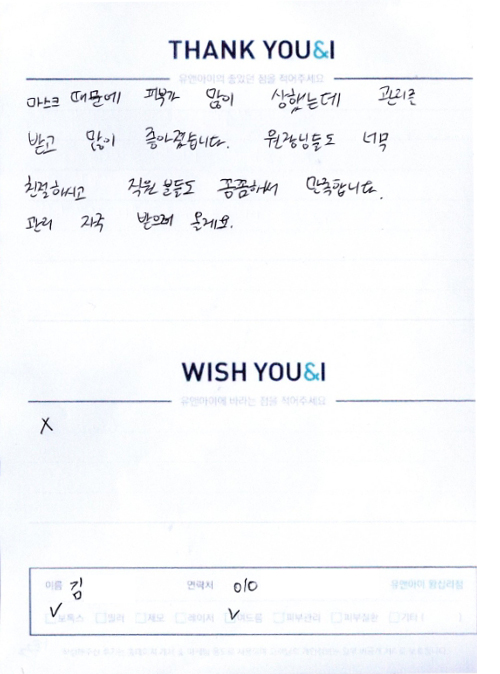 THANK YOU&I
유앤아이의 좋았던 점을 적어주세요
마스크 때문에 피부가 많이 상했는데 관리를
받고 많이 좋아졌습니다. 원장님들도 너무
친절하시고 직원분들도 꼼꼼해서 만족합니다.
관리 자주 받으러 올게요.
WISH YOU&I
유앤아이에 바라는 점을 적어주세요
X
이름 김 연락처 010 유앤아이 왕십리점
✓ 보톡스 필러 제모 레이저 ✓ 여드름 피부관리 피부질환 기타 ( )